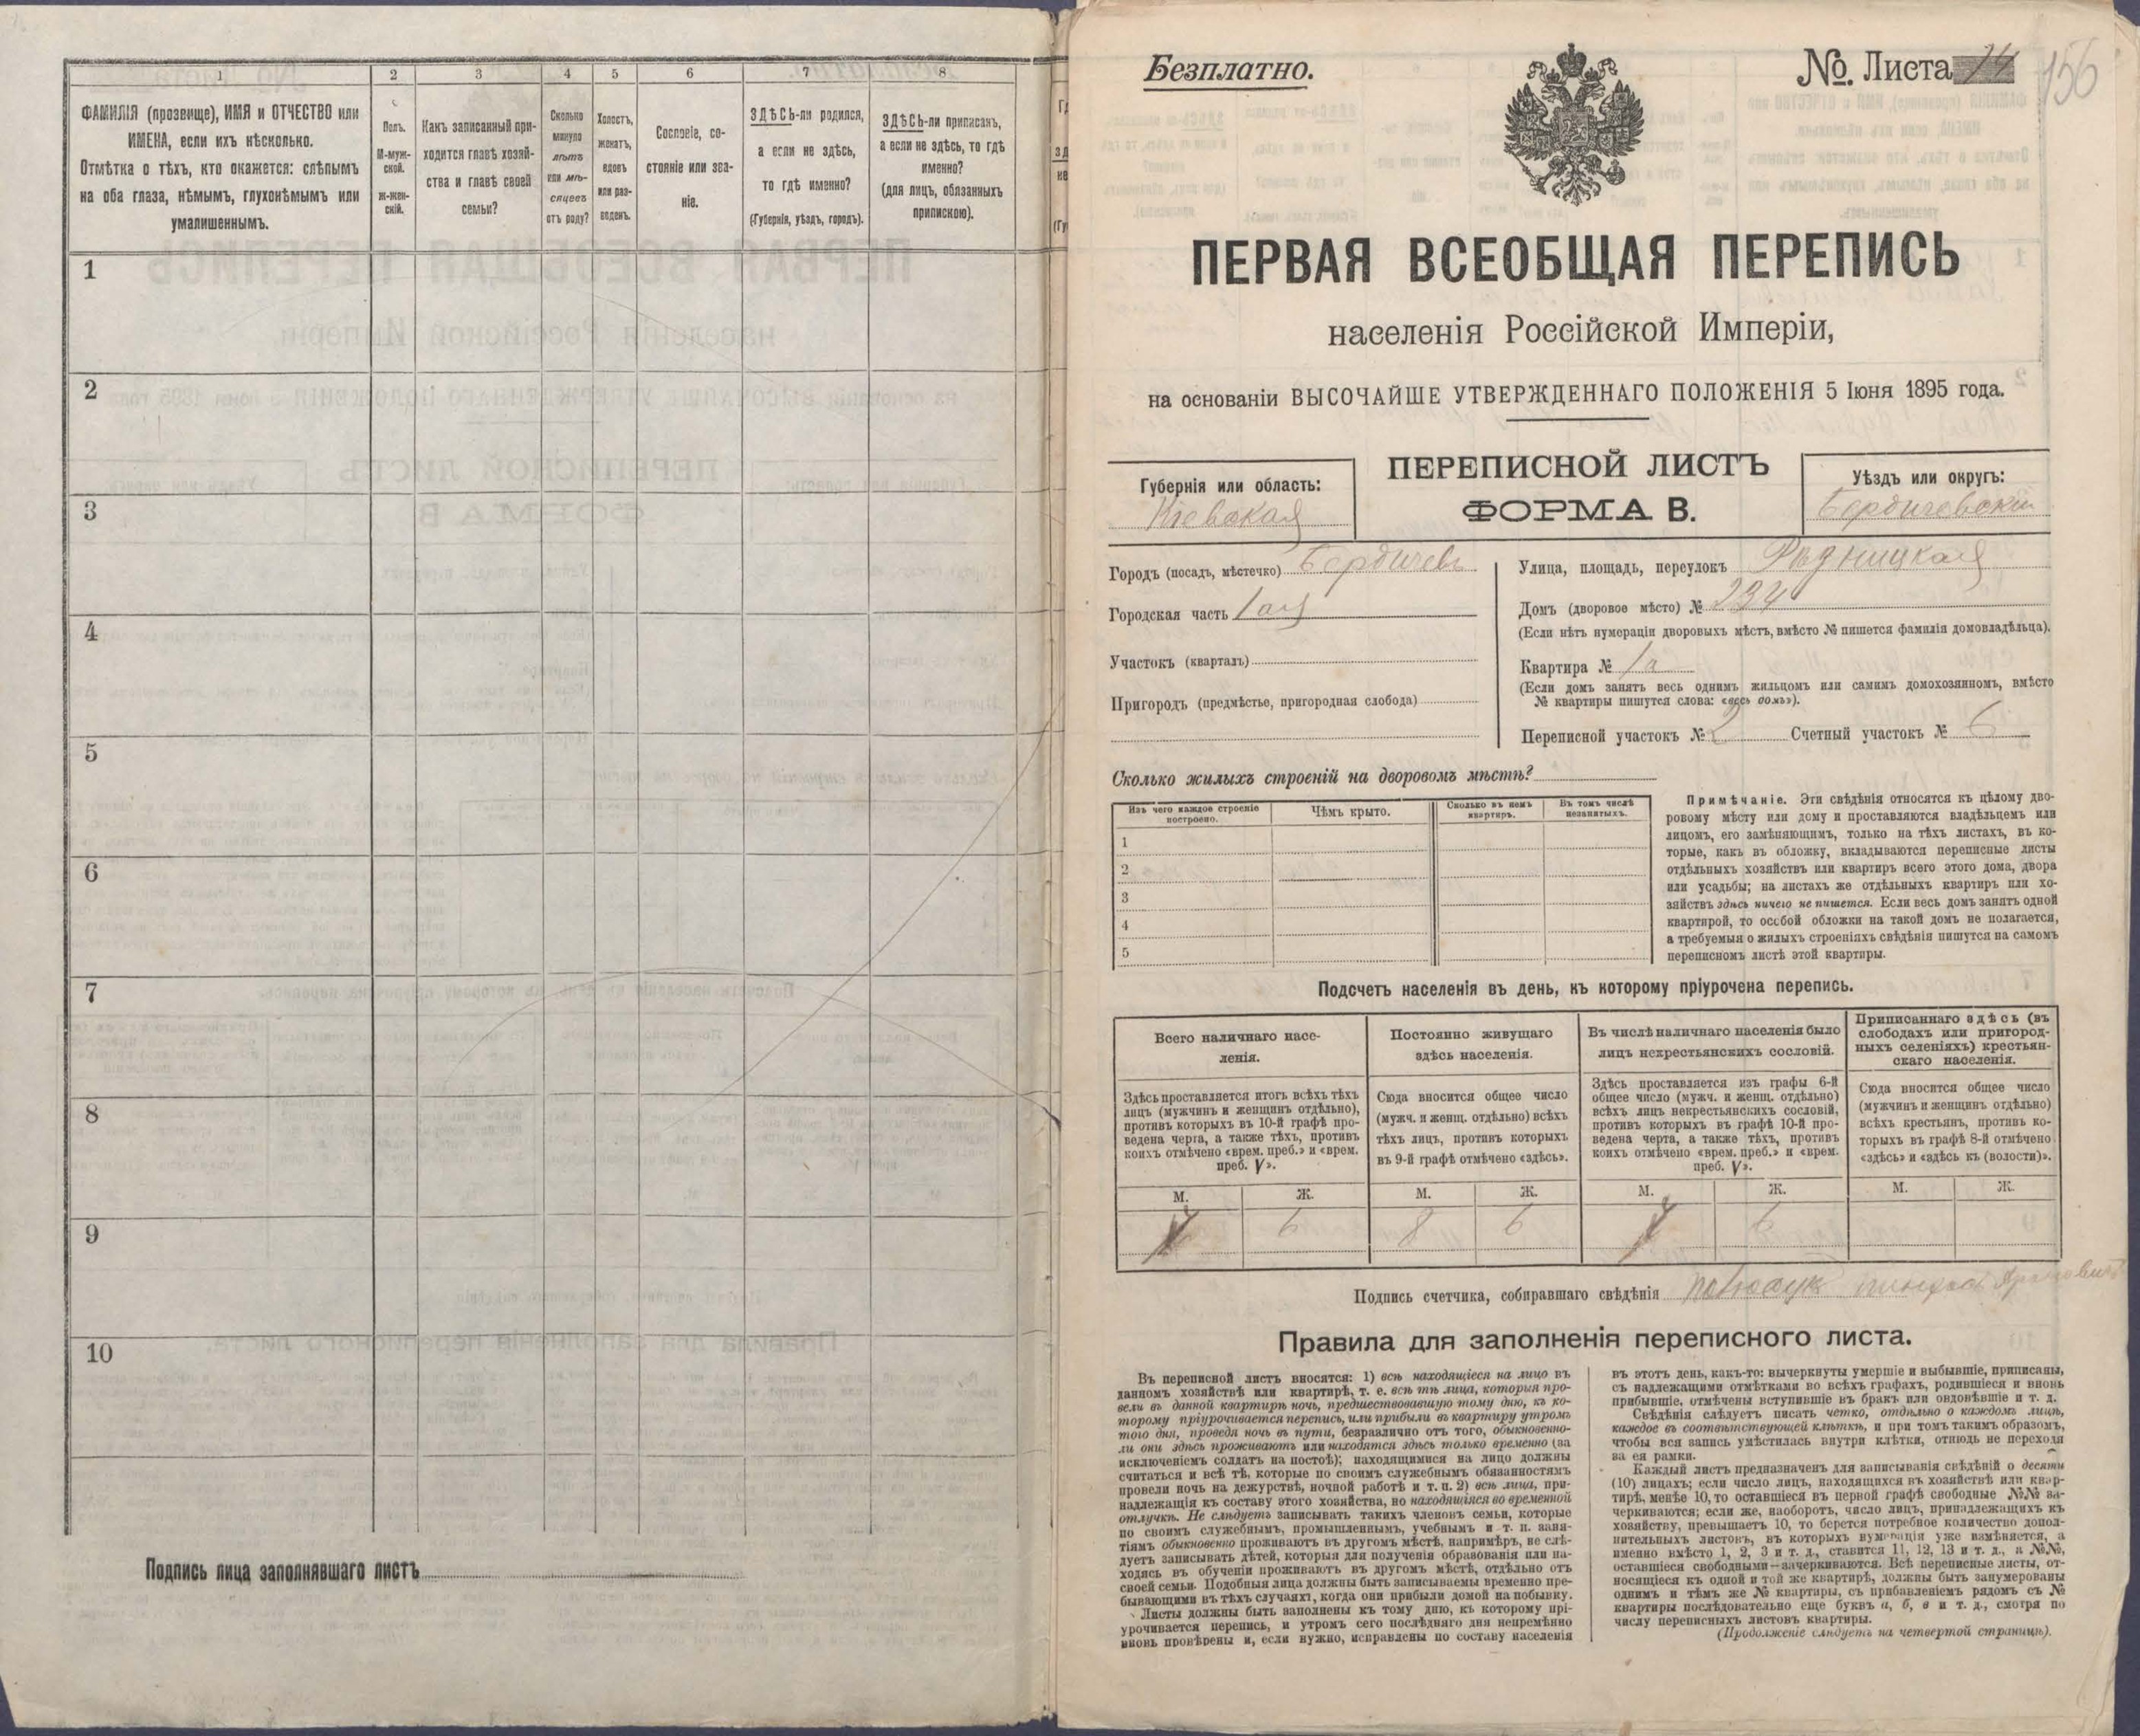 1
2
3
4
5
6
7
8
ФАМИЛІЯ (прозвище), ИМЯ и ОТЧЕСТВО или
ИМЕНА, если ихъ нѣсколько.
Отмѣтка о тѣхъ, кто окажется: слѣпымъ
на оба глаза, нѣмымъ, глухонѣмымъ или
умалишеннымъ.
Полъ.
М-муж-
ской.
ж-жен-
скій.
Какъ записанный при-
ходится главѣ хозяй-
ства и главѣ своей
семьи?
Сколько
минуло
лѣтъ
или мѣ-
сяцевъ
отъ роду?
Холостъ,
женатъ,
вдовъ
или раз-
веденъ.
Сословіе, со-
стояніе или зва-
ніе.
ЗДѢСЬ-ли родился,
а если не здѣсь,
то гдѣ именно?
(Губернія, уѣздъ, городъ).
ЗДѢСЬ-ли приписанъ,
а если не здѣсь, то гдѣ
именно?
(для лицъ, обязанныхъ
припискою).
1
2
3
4
5
6
7
8
9
10
Подпись лица заполнявшаго листъ
Безплатно.
№. Листа 14
156
ПЕРВАЯ ВСЕОБЩАЯ ПЕРЕПИСЬ
населенія Россійской Имперіи,
на основаніи ВЫСОЧАЙШЕ УТВЕРЖДЕННАГО ПОЛОЖЕНІЯ 5 Іюня 1895 года.
Губернія или область:
Кіевская
ПЕРЕПИСНОЙ ЛИСТЪ
ФОРМА В.
Уѣздъ или округъ:
Бердичевскій
Городъ (посадъ, мѣстечко) Бердичевъ
Городская часть 1ая
Участокъ (кварталъ)
Пригородъ (предмѣстье, пригородная слобода)
Улица, площадь, переулокъ
Домъ (дворовое мѣсто) № 234
(Если нѣтъ нумераціи дворовыхъ мѣстъ, вмѣсто № пишется фамилія домовладѣльца).
Квартира № 1а
(Если домъ занятъ весь однимъ жильцомъ или самимъ домохозяиномъ, вмѣсто
№ квартиры пишутся слова: «весь домъ»).
Переписной участокъ № 2 Счетный участокъ № 6
Сколько жилыхъ строеній на дворовомъ мѣстѣ?
Изъ чего каждое строеніе
построено.
Чѣмъ крыто.
Сколько въ немъ
квартиръ.
Въ томъ числѣ
незанятыхъ.
1
2
3
4
5
Примѣчаніе. Эти свѣдѣнія относятся къ цѣлому дво-
ровому мѣсту или дому и проставляются владѣльцемъ или
лицомъ, его замѣняющимъ, только на тѣхъ листахъ, въ ко-
торые, какъ въ обложку, вкладываются переписные листы
отдѣльныхъ хозяйствъ или квартиръ всего этого дома, двора
или усадьбы; на листахъ же отдѣльныхъ квартиръ или хо-
зяйствъ здѣсь ничего не пишется. Если весь домъ занятъ одной
квартирой, то особой обложки на такой домъ не полагается,
а требуемыя о жилыхъ строеніяхъ свѣдѣнія пишутся на самомъ
переписномъ листѣ этой квартиры.
Подсчетъ населенія въ день, къ которому пріурочена перепись.
Всего наличнаго насе-
ленія.
Постоянно живущаго
здѣсь населенія.
Въ числѣ наличнаго населенія было
лицъ некрестьянскихъ сословій.
Приписаннаго здѣсь (въ
слободахъ или пригород-
ныхъ селеніяхъ) крестьян-
скаго населенія.
Здѣсь проставляется итогъ всѣхъ тѣхъ
лицъ (мужчинъ и женщинъ отдѣльно),
противъ которыхъ въ 10-й графѣ про-
ведена черта, а также тѣхъ, противъ
коихъ отмѣчено «врем. преб.» и «врем.
преб. V».
Сюда вносится общее число
(мужч. и женщ. отдѣльно) всѣхъ
тѣхъ лицъ, противъ которыхъ
въ 9-й графѣ отмѣчено «здѣсь».
Здѣсь проставляется изъ графы 6-й
общее число (мужч. и женщ. отдѣльно)
всѣхъ лицъ некрестьянскихъ сословій,
противъ которыхъ въ графѣ 10-й про-
ведена черта, а также тѣхъ, противъ
коихъ отмѣчено «врем. преб.» и «врем.
преб. V».
Сюда вносится общее число
(мужчинъ и женщинъ отдѣльно)
всѣхъ крестьянъ, противъ ко-
торыхъ въ графѣ 8-й отмѣчено
«здѣсь» и «здѣсь къ (волости)».
М. Ж. М. Ж. М. Ж. М. Ж.
6 8 6 6
Подпись счетчика, собиравшаго свѣдѣнія
Правила для заполненія переписного листа.
Въ переписной листъ вносятся: 1) всѣ находящіеся на лицо въ
данномъ хозяйствѣ или квартирѣ, т. е. всѣ тѣ лица, которыя про-
вели въ данной квартирѣ ночь, предшествовавшую тому дню, къ ко-
торому пріурочивается перепись, или прибыли въ квартиру утромъ
того дня, проведя ночь въ пути, безразлично отъ того, обыкновенно-
ли они здѣсь проживаютъ или находятся здѣсь только временно (за
исключеніемъ солдатъ на постоѣ); находящимися на лицо должны
считаться и всѣ тѣ, которые по своимъ служебнымъ обязанностямъ
провели ночь на дежурствѣ, ночной работѣ и т. п. 2) всѣ лица, при-
надлежащія къ составу этого хозяйства, но находящіяся во временной
отлучкѣ. Не слѣдуетъ записывать такихъ членовъ семьи, которые
по своимъ служебнымъ, промышленнымъ, учебнымъ и т. п. заня-
тіямъ обыкновенно проживаютъ въ другомъ мѣстѣ, напримѣръ, не слѣ-
дуетъ записывать дѣтей, которыя для полученія образованія или на-
ходясь въ обученіи проживаютъ въ другомъ мѣстѣ, отдѣльно отъ
своей семьи. Подобныя лица должны быть записываемы временно пре-
бывающими въ тѣхъ случаяхъ, когда они прибыли домой на побывку.
Листы должны быть заполнены къ тому дню, къ которому прі-
урочивается перепись, и утромъ сего послѣдняго дня непремѣнно
вновь провѣрены и, если нужно, исправлены по составу населенія
въ этотъ день, какъ-то: вычеркнуты умершіе и выбывшіе, приписаны,
съ надлежащими отмѣтками во всѣхъ графахъ, родившіеся и вновь
прибывшіе, отмѣчены вступившіе въ бракъ или овдовѣвшіе и т. д.
Свѣдѣнія слѣдуетъ писать четко, отдѣльно о каждомъ лицѣ,
каждое въ соотвѣтствующей клѣткѣ, и при томъ такимъ образомъ,
чтобы вся запись умѣстилась внутри клѣтки, отнюдь не переходя
за ея рамки.
Каждый листъ предназначенъ для записыванія свѣдѣній о десяти
(10) лицахъ; если число лицъ, находящихся въ хозяйствѣ или квар-
тирѣ, менѣе 10, то оставшіеся въ первой графѣ свободные №№ за-
черкиваются; если же, наоборотъ, число лицъ, принадлежащихъ къ
хозяйству, превышаетъ 10, то берется потребное количество допол-
нительныхъ листовъ, въ которыхъ нумерація уже измѣняется, а
именно вмѣсто 1, 2, 3 и т. д., ставится 11, 12, 13 и т. д., а №№,
оставшіеся свободными—зачеркиваются. Всѣ переписные листы, от-
носящіеся къ одной и той же квартирѣ, должны быть занумерованы
однимъ и тѣмъ же № квартиры, съ прибавленіемъ рядомъ съ №
квартиры послѣдовательно еще буквъ а, б, в и т. д., смотря по
числу переписныхъ листовъ квартиры.
(Продолженіе слѣдуетъ на четвертой страницѣ).